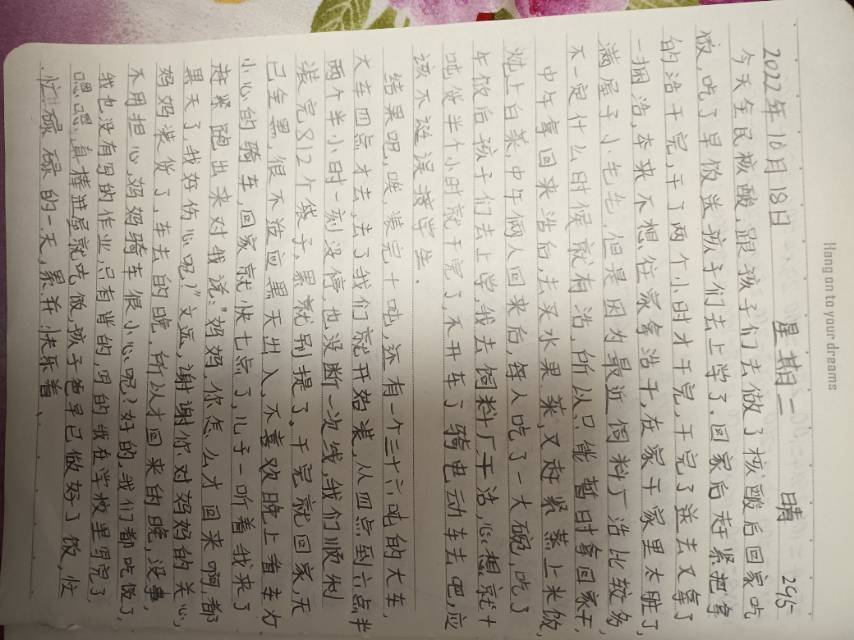 Hang on to your dreams
2022年10月18日 星期二 晴 295
今天全民核酸,跟孩子们去做了核酸后回家吃
饭,吃了早饭送孩子们去上学了,回家后赶紧把拿
的活干完,干了两个小时才干完,干完了送去又拿了
一捆活,本来不想往家拿活干,在家干家里太脏了,
满屋子小毛毛,但是因为最近饲料厂活比较多,
不一定什么时候就有活,所以只能暂时拿回家干,
中午拿回来活后,去买水果菜,又赶紧蒸上米饭,
炖上白菜,中午俩人回来后,每人吃了一大碗,吃了
午饭后孩子们去上学,我去饲料厂干活,心想就十
吨货半个小时就干完了,不开车了骑电动车去吧,应
该不耽误接学生.
结果呢,唉,装完十吨,还有一个三十六吨的大车,
大车四点才去,去了我们就开始装,从四点到六点半
两个半小时一刻没停,也没断一次线,我们顺利
装完812个袋子,累就别提了。干完就回家,天
已全黑,很不适应黑天出入,不喜欢晚上看车灯,
小心的骑车,回家就快七点了,儿子一听着我来了
赶紧跑出来对我说:"妈妈,你怎么才回来啊,都
黑天了,我好伤心呢?"文远,谢谢你对妈妈的关心,
妈妈装货了,车去的晚,所以才回来的晚,没事,
不用担心,妈妈骑车很小心呢?好的,我们都吃饭了,
我也没有写的作业,只有背的,写的我在学校里写完了
嗯嗯,真棒进屋就吃饭,孩子爸早已做好了饭,忙
忙碌碌的一天,累并快乐着、